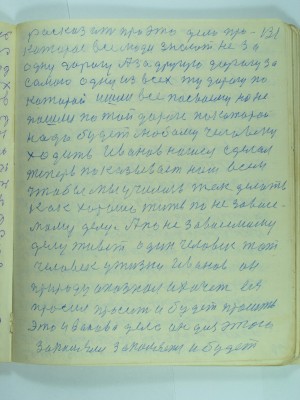 рассказ ит про это дело про- 131
которае все люди знают не за
одну дарогу А за другую дарогу за
самою одну из всех ту дарогу по
каторай ишли все посваему но не
пашли по той дароге по каторой
нада будет любому человеку
ходить Иванов нашел сделал
теперь показывает нам всем
чтобы мы учились так делать
как хорошо тоже по не зависи-
маму делу. А по не зависимаму
делу живет один человек тот
человек у жизни Иванов он
природу осознал и хочет ея
просил просит и будет просить
Это Иванова дело он для этого
закалялся закаляется и будет